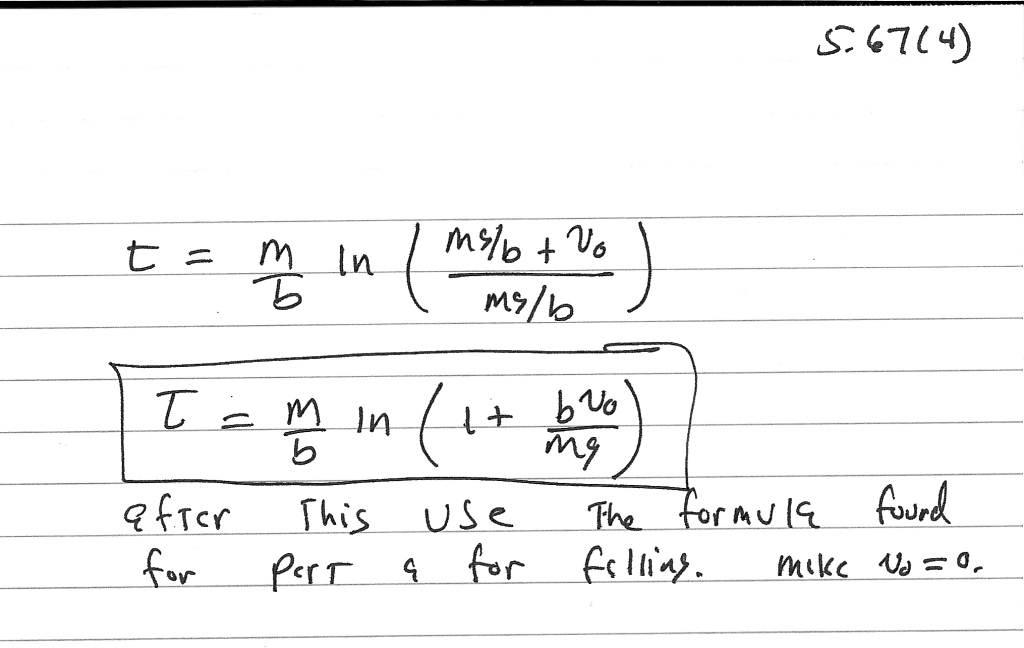 5.67(4)
t = m/b ln ( (mg/b + v₀) / (mg/b) )
t = m/b ln ( 1 + bv₀/mg )
after This use The formula found
for part a for falling. make v₀ = 0.